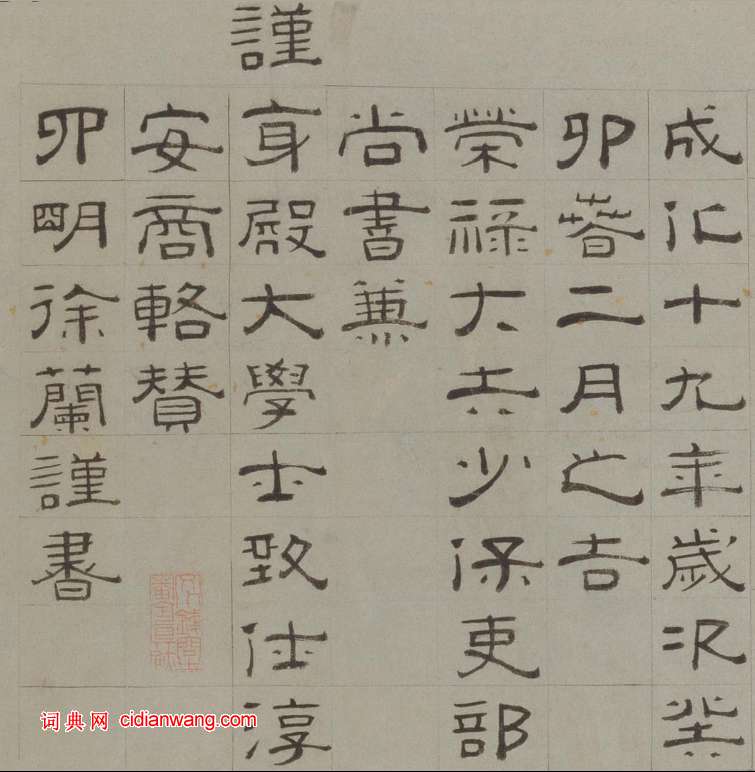 成化十九年歲次癸
卯春二月之吉
榮祿大夫少保吏部
尚書兼
謹身殿大學士致仕淳
安商輅贊
四明徐蘭謹書
词典网 cidianwang.com